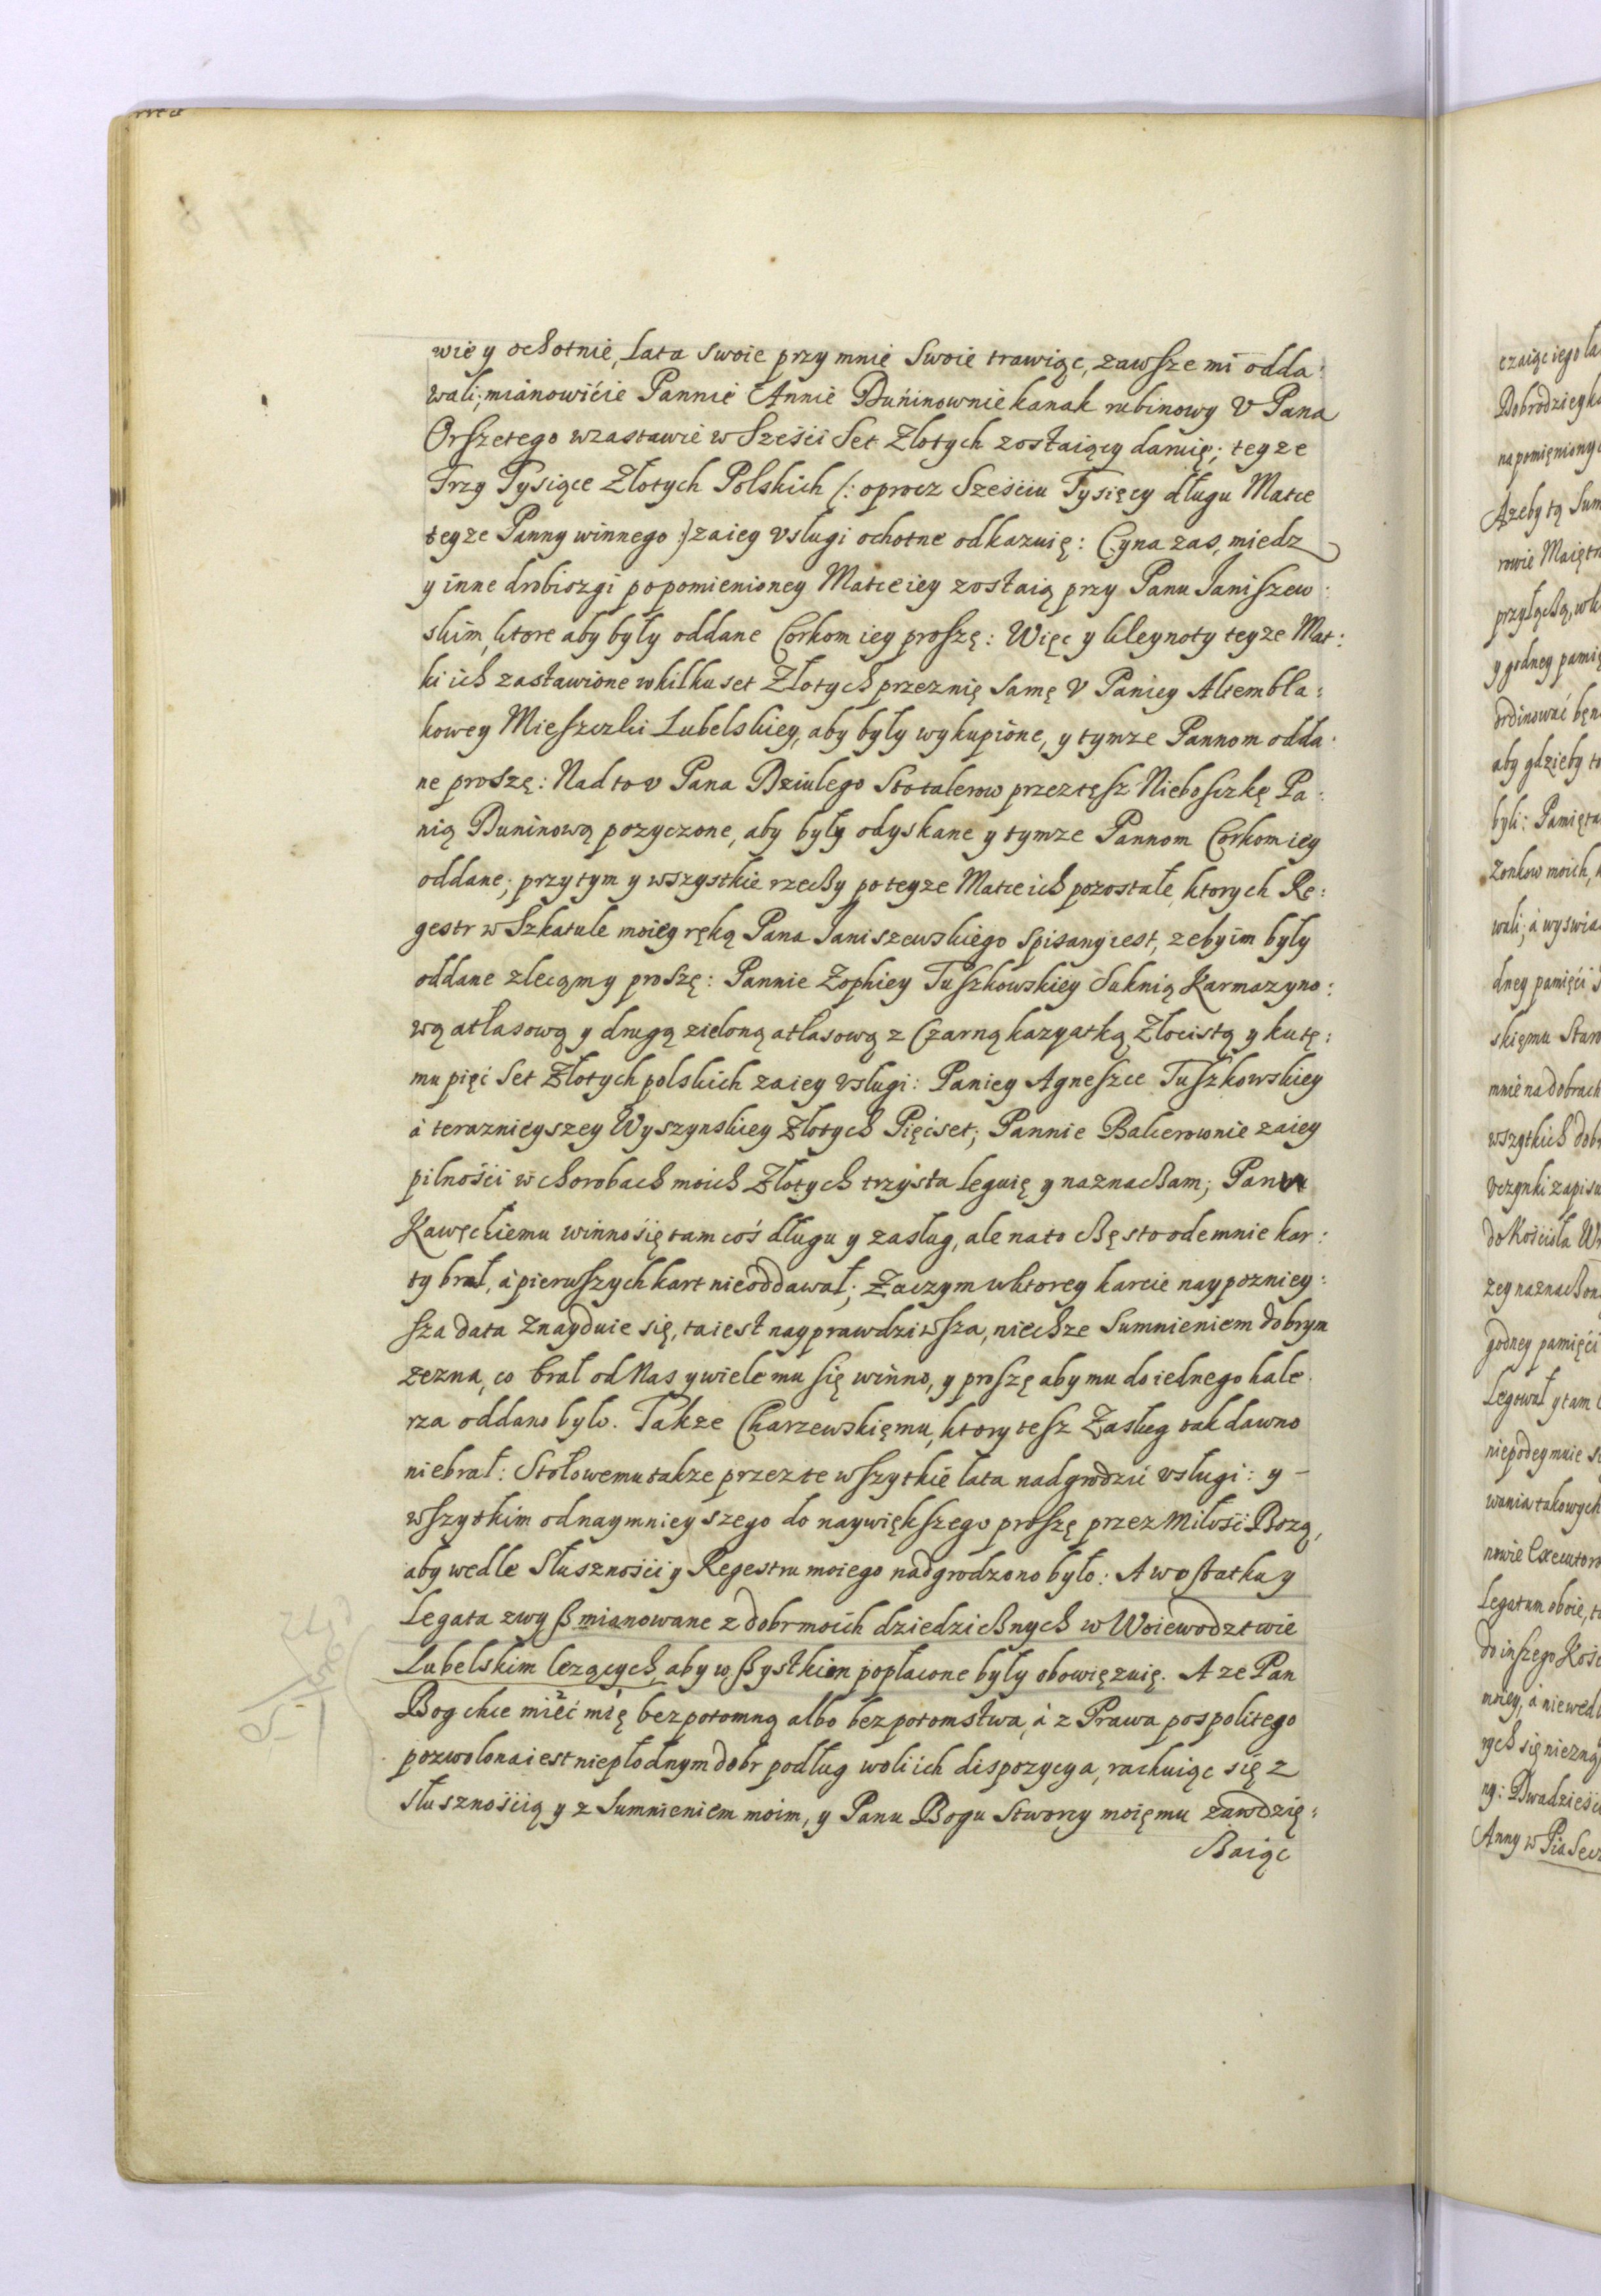 wie y ochotnie, lata swoie przy mnie swoie trawiąc, zawsze mi odda:
wali; mianowićie Pannie Annie Duńinownie kanak rubinowy V Pana
Orszetego wzastawie w Sześii Set Złotych zostaiący daruię; teyze
Trzy Tysiące Złotych Polskich /: oprocz Sześciu Tysięcy długu Matce
teyze Panny winnego :/ zaiey vsługi ochotne odkazuię: Cyna zas, miedz
y inne drobiozgi popomienioney Matce iey zostaią przy Panu Janiszew:
skim, ktore aby były oddane Corkom iey proszę: Więc y kleynoty teyze Mat:
ki ich zastawione wkilku set Złotych przeznię Samę V Paniey Altembla:
kowey Mieszczki Lubelskiey, aby były wykupione, y tymze Pannom odda:
ne proszę: Nadto v Pana Dziulego Sto talerow przeztęsz Nieboszczkę Pa:
nią Duninową pozyczone, aby były odyskane y tymze Pannom Corkom iey
oddane; przytym y wszystkie rzeczy poteyze Matce ich pozostałe, ktorych Re:
gestr w Szkatule moiey ręką Pana Janiszewskiego Spisany iest, zeby im były
oddane zlecąm y proszę: Pannie Zophiey Tuszkowskiey Suknią Karmazyno:
wą atłasową y drugą zieloną atłasową z Czarną kazyatką Złocistą y kutę:
mu pięć Set Złotych polskich zaiey vsługi: Paniey Agnieszce Tuszkowskiey
à teraznieyszey Wyszynskiey Złotych Pięćset; Pannie Balcerownie zaiey
pilnośći w chorobach moich Złotych trzysta leguię y naznaczam; Panu
Kawęckiemu winno się tam coś długu y zasług, ale nato często odemnie kar:
ty brał, à pierwszych kart nieoddawał; Zaczym wktorey karcie naypozniey:
sza data Znayduie się, taiest nayprawdziwsza, niechze Sumnieniem dobrym
zezna, co brał od Nas y wiele mu się winno, y proszę aby mu do iednego hale:
rza oddano było. Takze Charzewskięmu, ktory tesz Zasług tak dawno
niebrał: Stołowemu takze przez te wszytkie lata nadgrodzić vsługi: y –
wszytkim odnaymnieyszego do naywiększego proszę przez Miłość Bozą,
aby wedle Słusznośći y Regestru moiego nadgrodzono było: A w ostatku y
Legata zwyß mianowane z dobr moich dziedzicznych w Woiewodztwie
Lubelskim lezących, aby wßystkim popłacone były obowięzuię. A ze Pan
Bog chce mieć mię bezpotomną albo bezpotomstwa, à z Prawa pospolitego
pozwolona iest niepłodnym dobr podług woli ich dispozycya, rachuiąc się z
słusznośćią y z Sumnieniem moim, y Panu Bogu Stworcy moięmu zawdzię:
czaiąc